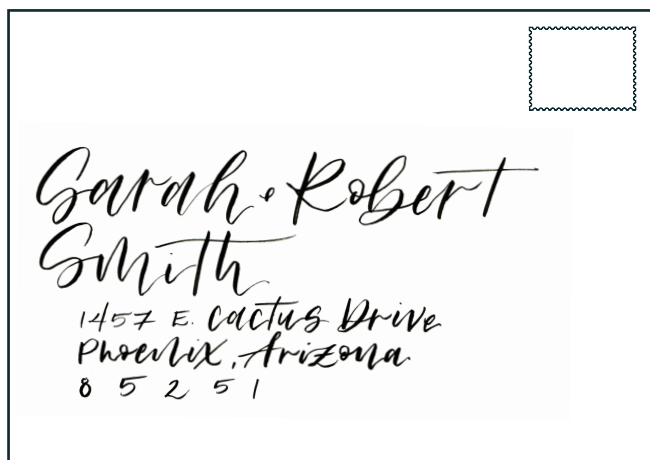 Sarah & Robert
Smith
1457 E. Cactus Drive
Phoenix, Arizona
8 5 2 5 1